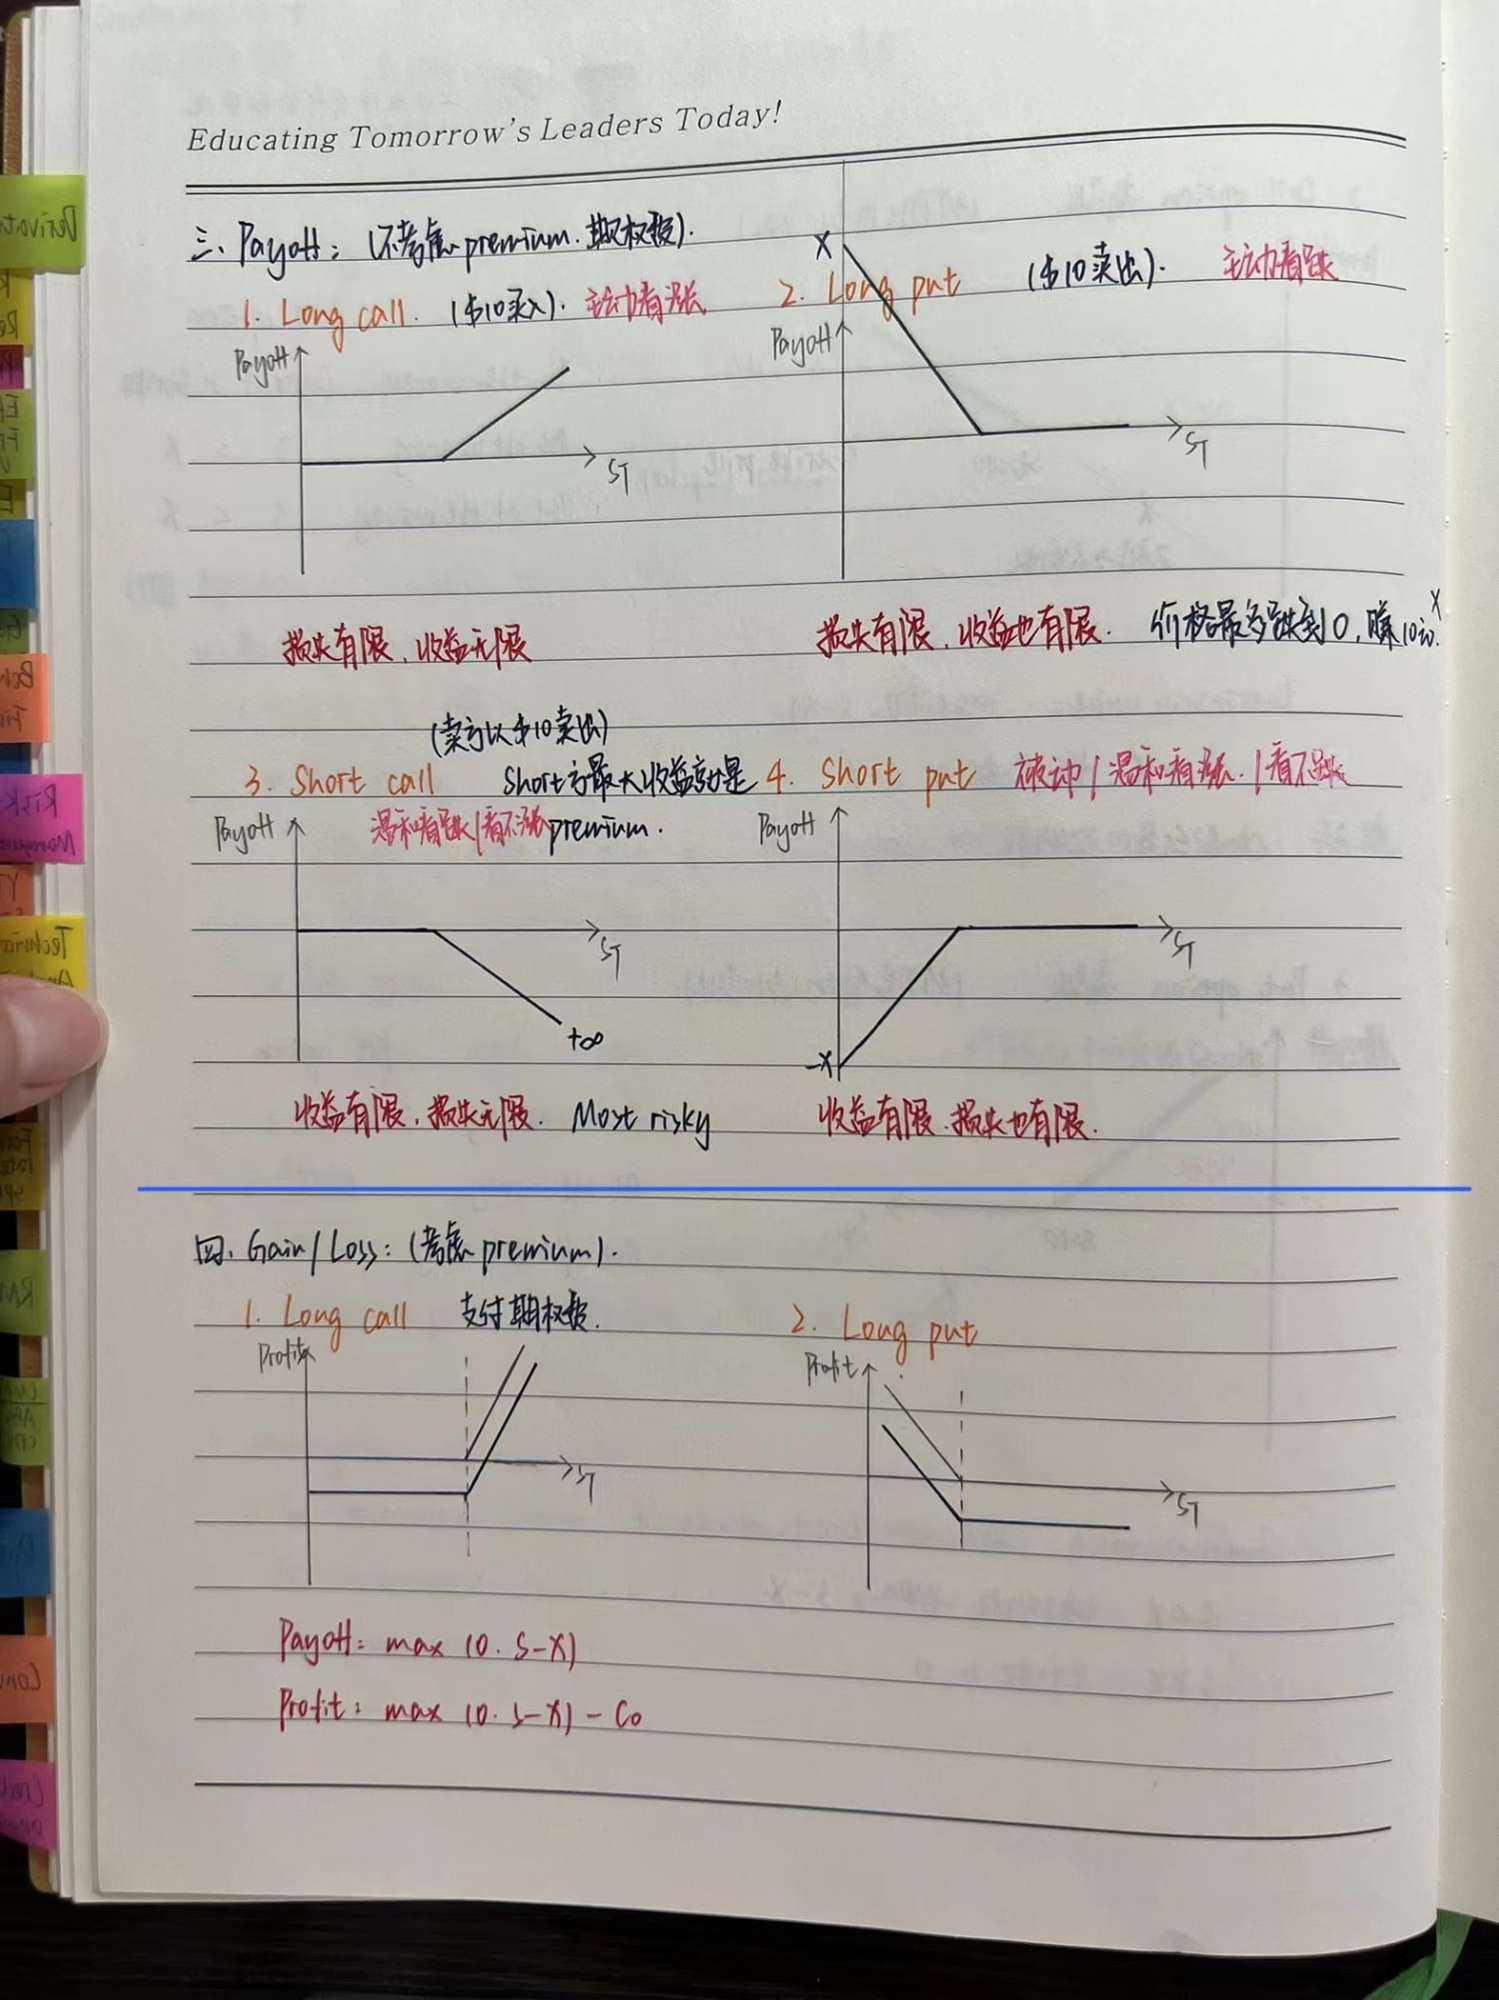 Educating Tomorrow's Leaders Today!
三、Payoff：(不考虑premium.期权费).
1. Long call. ($10买入). 主动看涨
Payoff
ST
损失有限、收益无限
X
2. Long put ($10卖出). 主动看跌
Payoff
ST
损失有限、收益也有限. 价格最多跌到0，赚10元.
X
(卖方以$10卖出)
3. Short call Short方最大收益就是
温和看跌/看不涨 premium.
Payoff
ST
+∞
收益有限，损失无限. Most risky
4. Short put 被动/温和看涨./看不跌
Payoff
ST
-X
收益有限、损失也有限.
四、Gain/Loss：(考虑premium).
1. Long call 支付期权费.
Profit
ST
2. Long put
Profit
ST
Payoff: max (0. S-X)
Profit: max (0. S-X) - C0
Risk